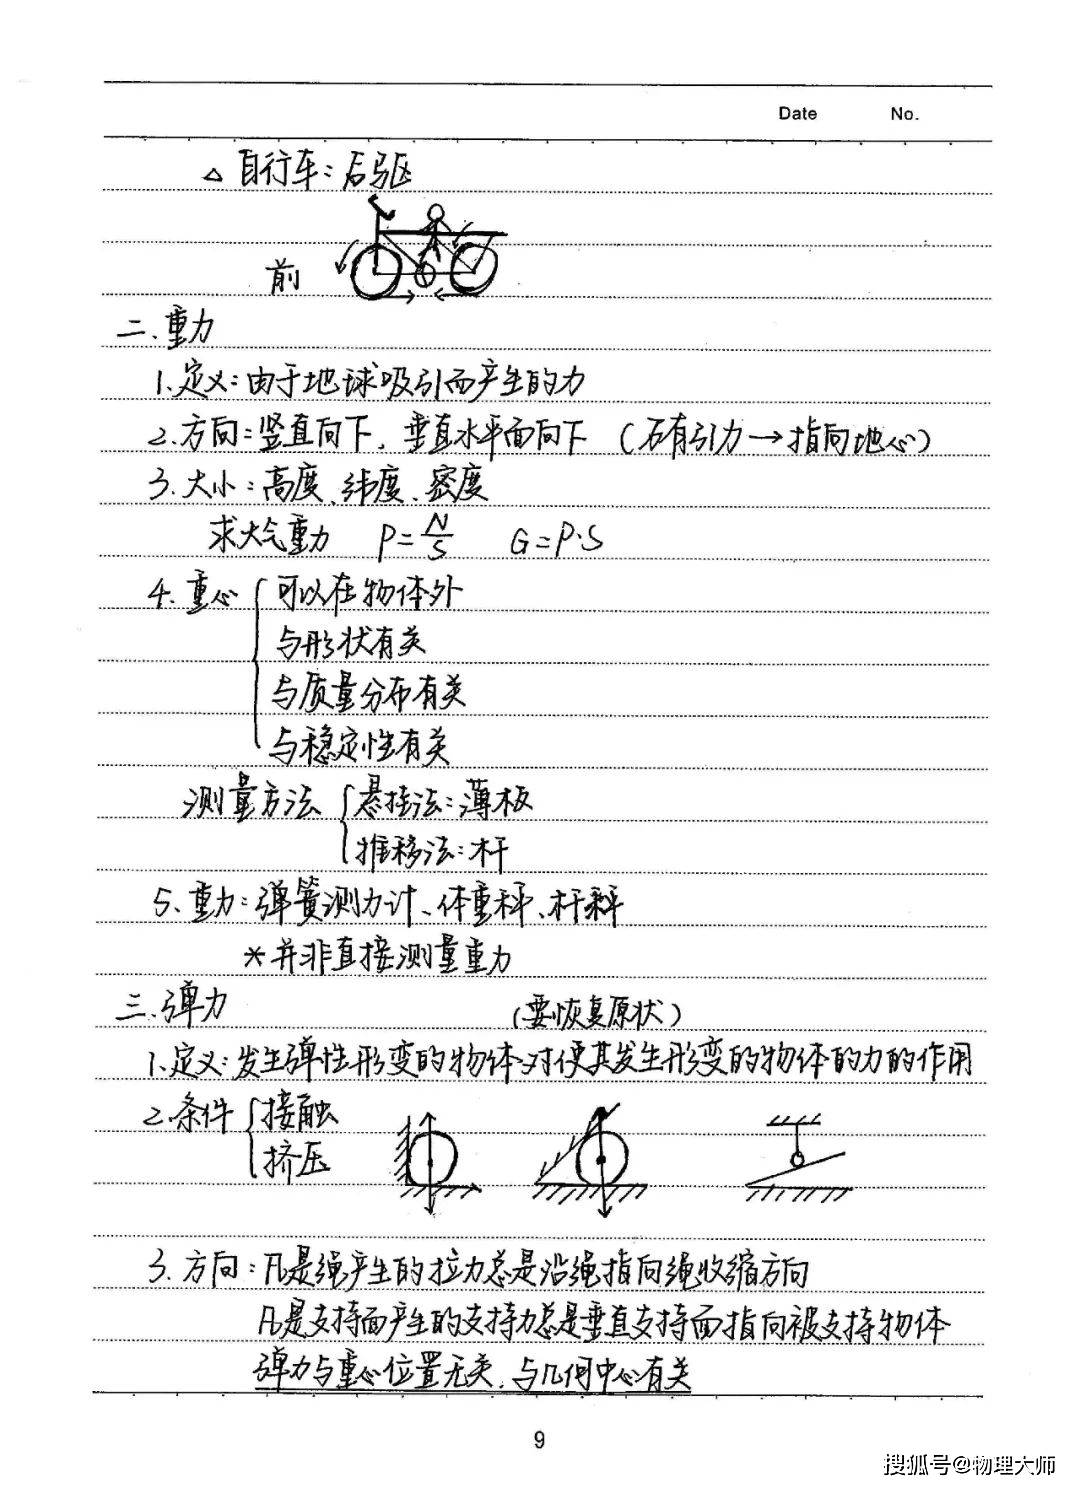 Date No.
△ 自行车：后驱
前
二、重力
1.定义：由于地球吸引而产生的力
2.方向：竖直向下，垂直水平面向下（万有引力→指向地心）
3.大小：高度、纬度、密度
求大气重力 P=N/S G=P·S
4.重心 { 可以在物体外
与形状有关
与质量分布有关
与稳定性有关
测量方法 { 悬挂法：薄板
推移法：杆
5.重力：弹簧测力计、体重秤、杆秤
*并非直接测量重力
三.弹力
（要恢复原状）
1.定义：发生弹性形变的物体对使其发生形变的物体的力的作用
2.条件 { 接触
挤压
3.方向：凡是绳产生的拉力总是沿绳指向绳收缩方向
凡是支持面产生的支持力总是垂直支持面指向被支持物体
弹力与重心位置无关，与几何中心有关
9
搜狐号@物理大师